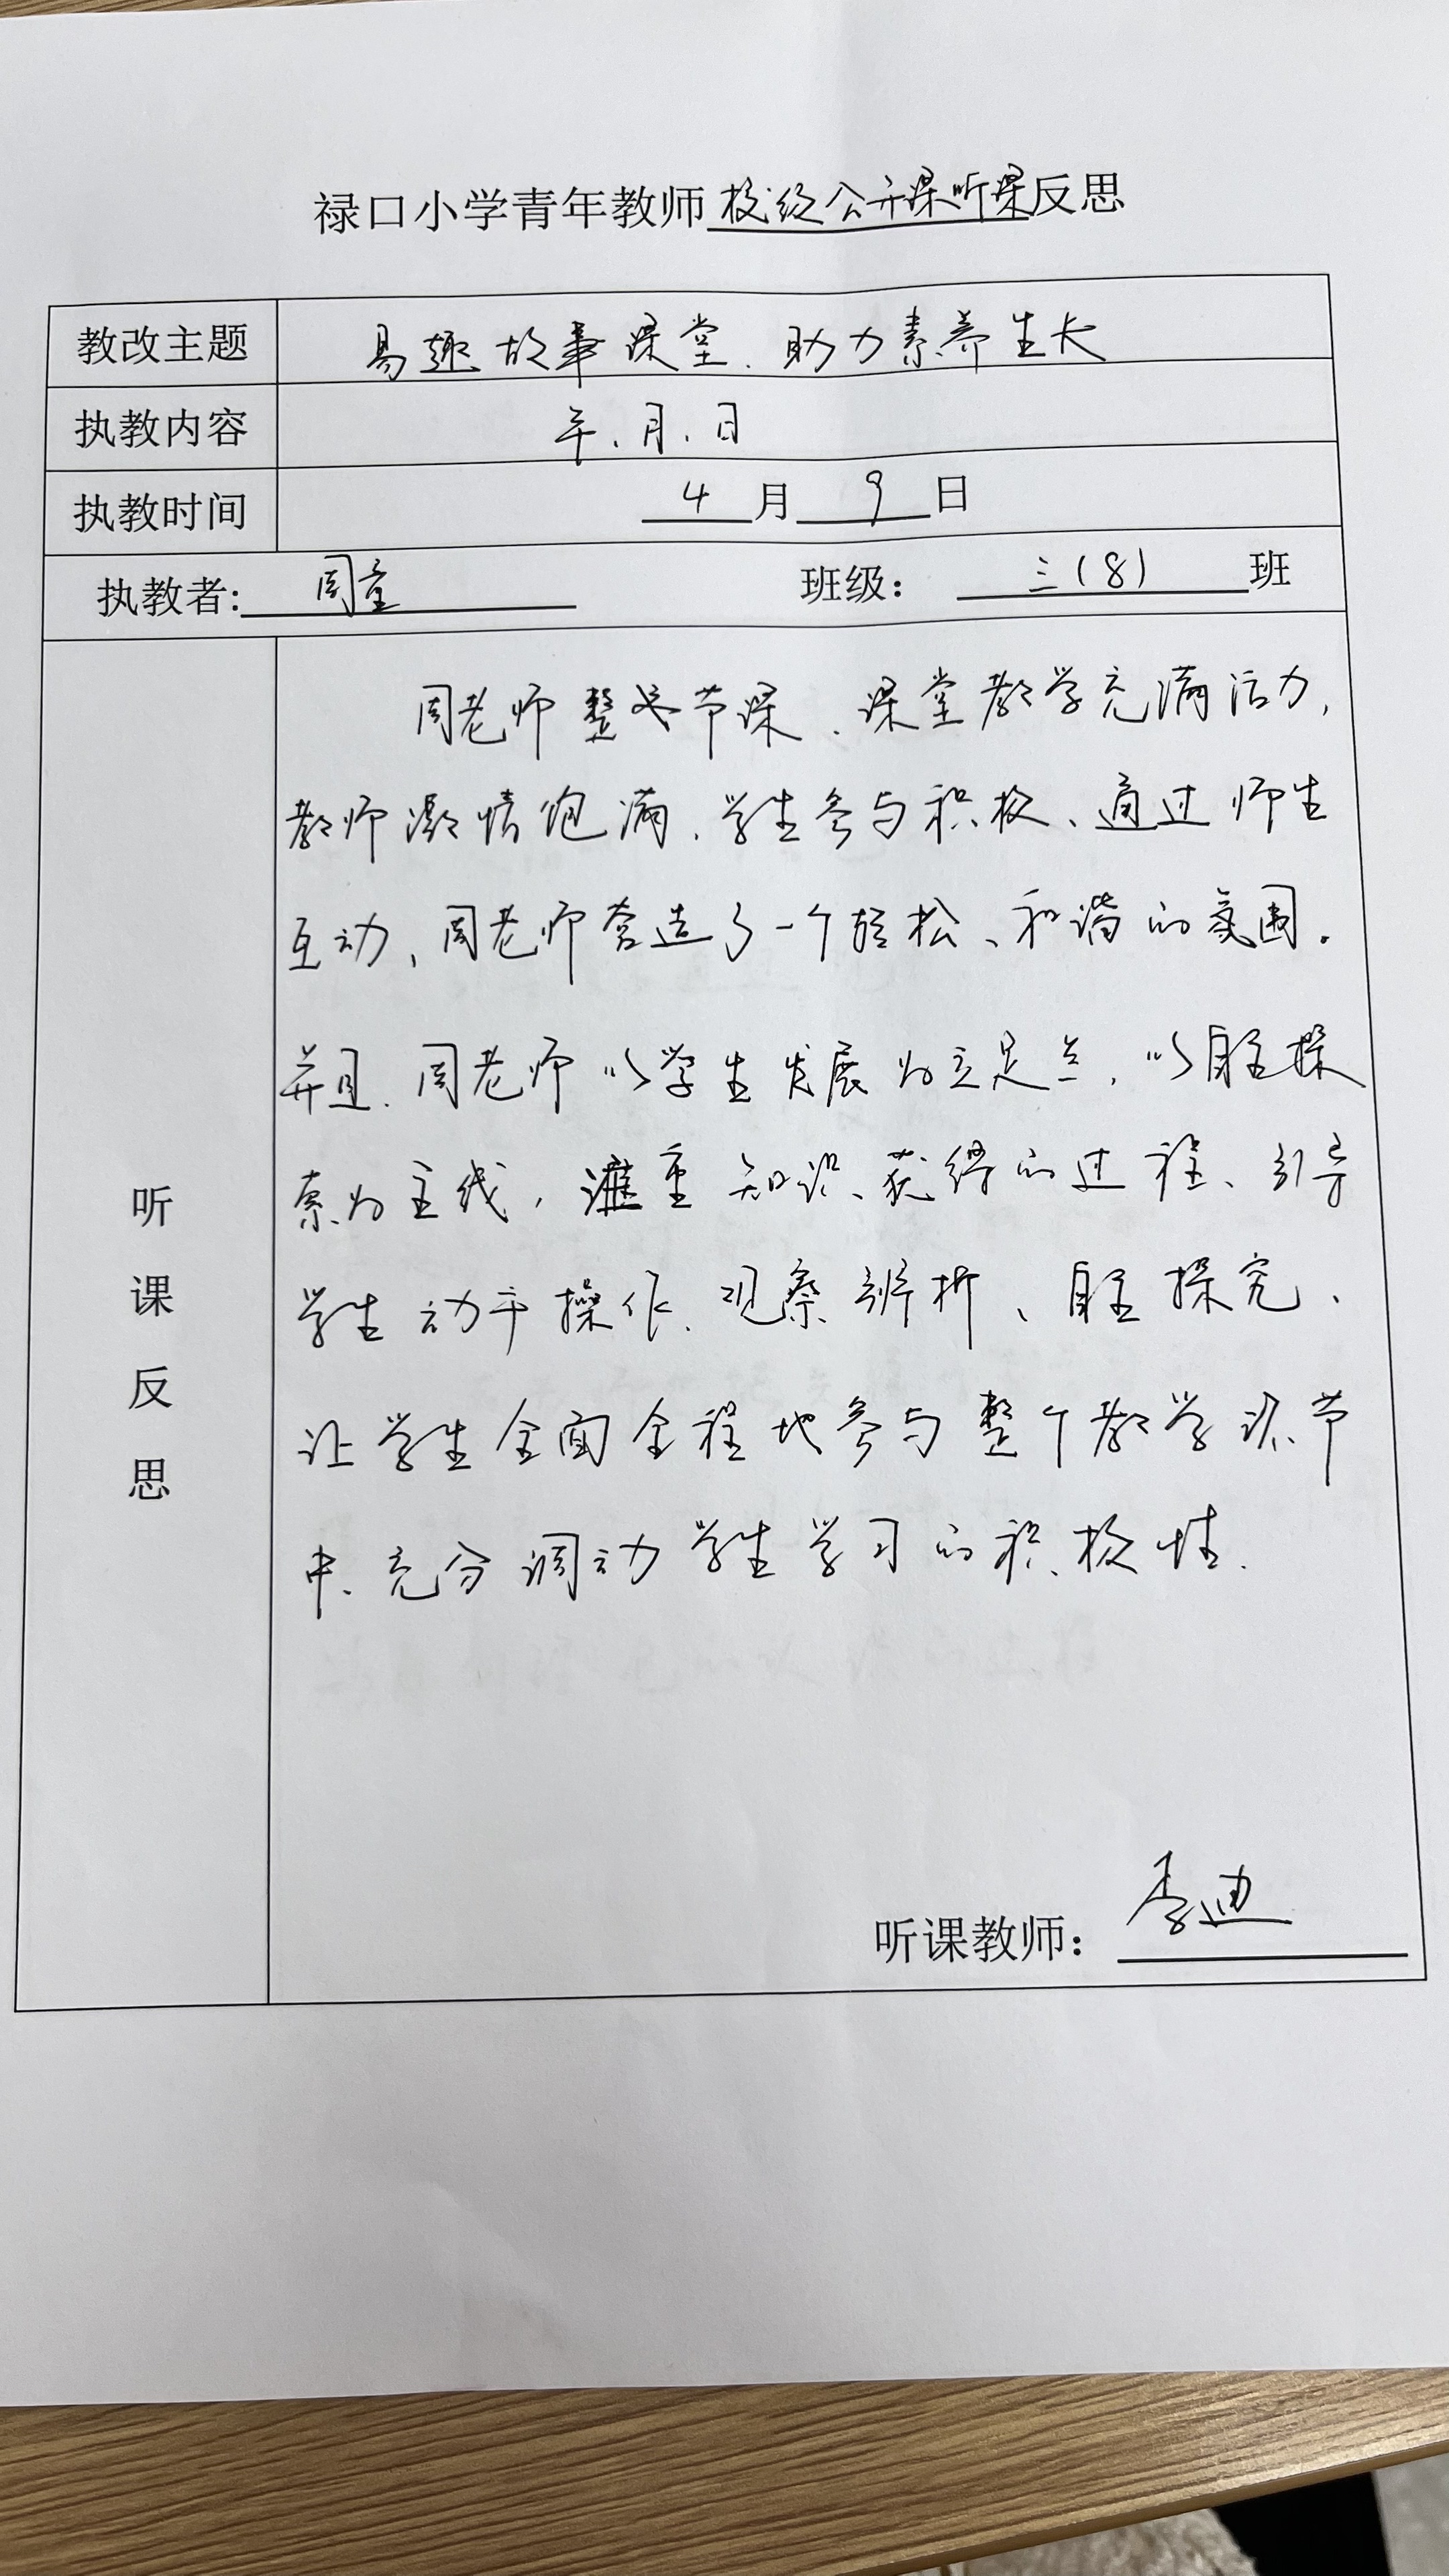 禄口小学青年教师校级公开课听课反思
教改主题 易趣故事课堂、助力素养生长
执教内容 年、月、日
执教时间 4月9日
执教者: 周童 班级： 三(8)班
听课反思
周老师整节课、课堂教学充满活力,
教师激情饱满、学生参与积极、通过师生
互动、周老师营造了一个轻松、和谐的氛围。
并且、周老师以学生发展为立足点, 以自主探
索为主线, 重知识、获得的过程、引导
学生动手操作、观察辨析、自主探究、
让学生全面全程地参与整个教学环节
中、充分调动学生学习的积极性.
听课教师： 李迪